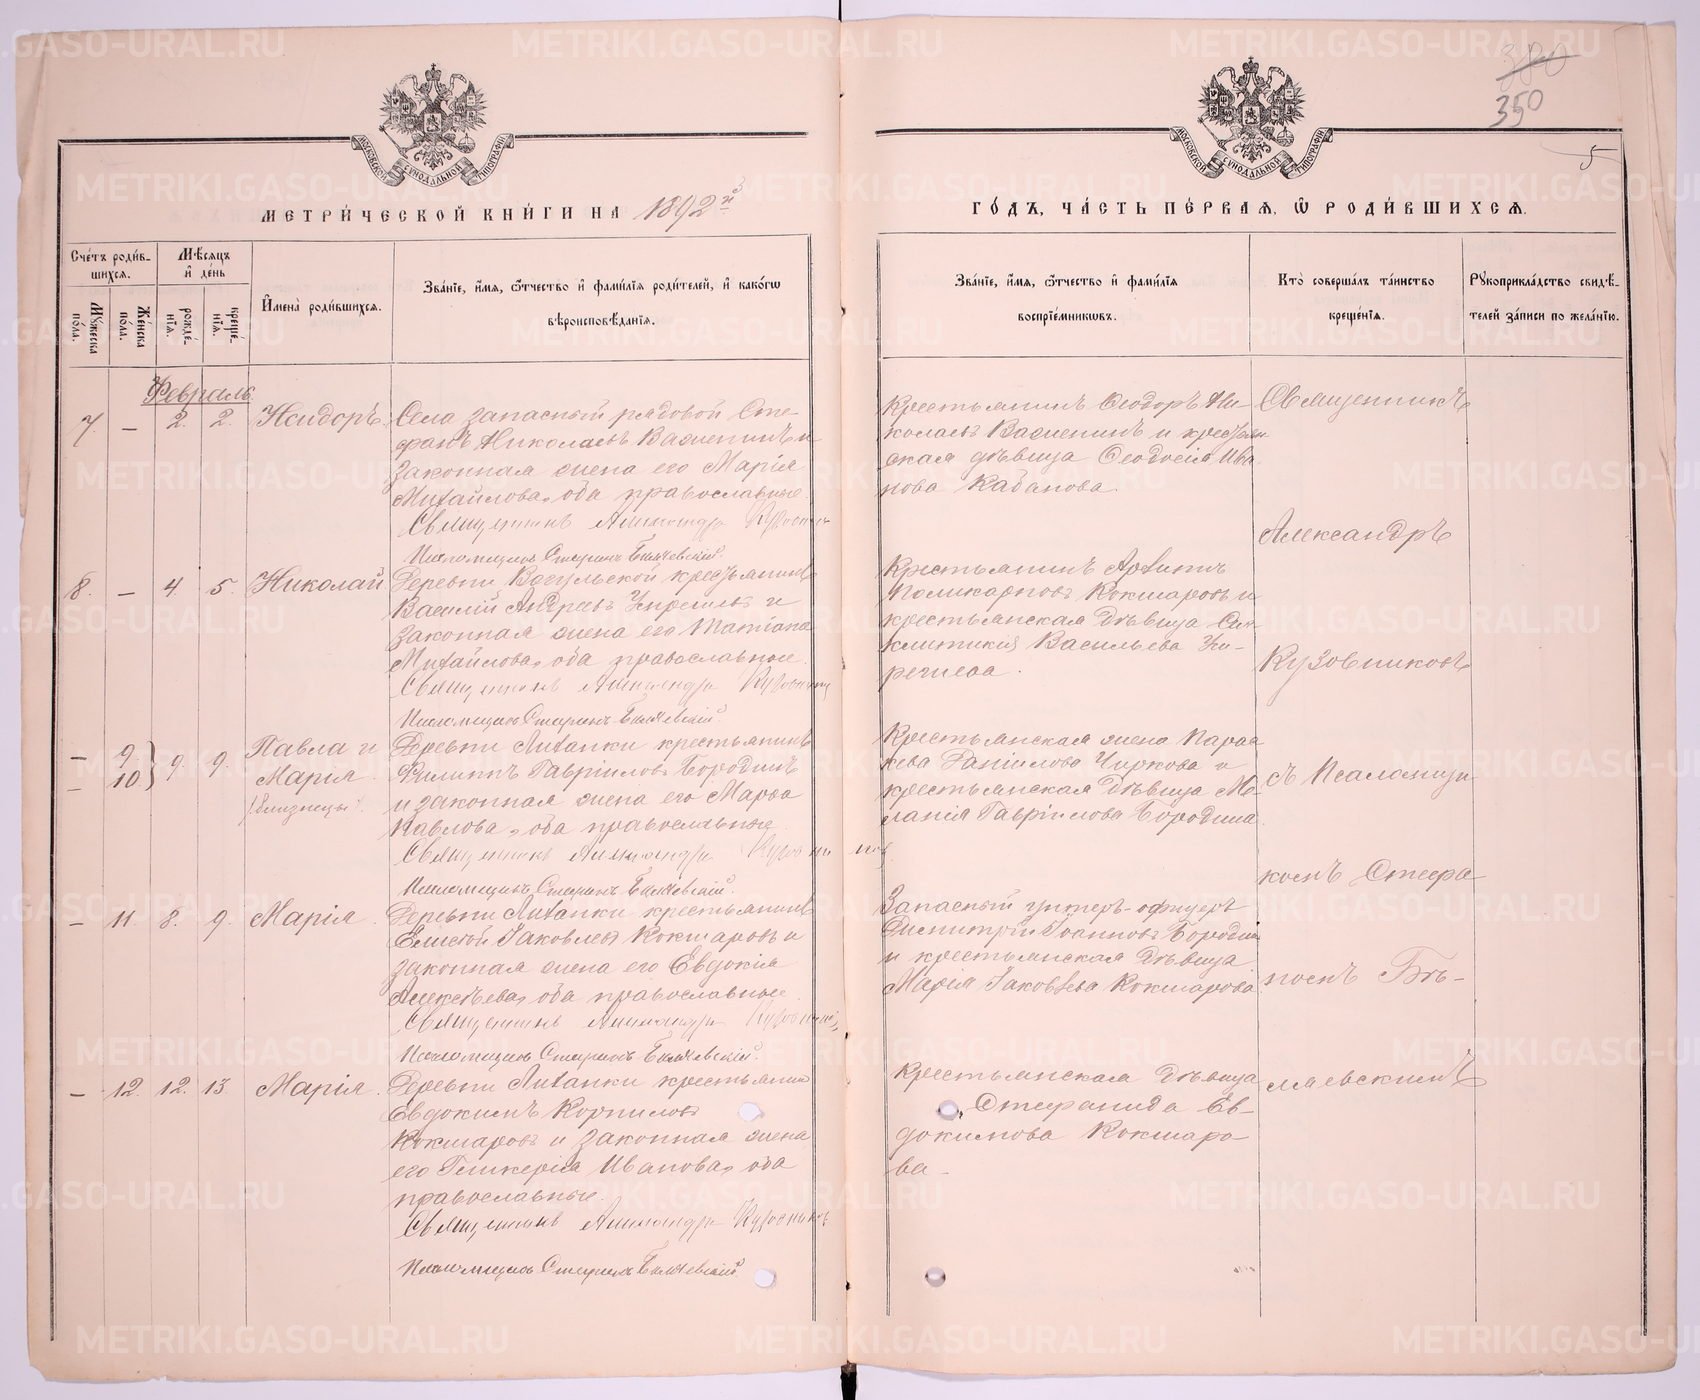 380
350
5
МОСКОВСКОЙ СѴНОДАЛЬНОЙ ТИПОГРАФІИ
МОСКОВСКОЙ СѴНОДАЛЬНОЙ ТИПОГРАФІИ
МЕТРИ́ЧЕСКОЙ КНИ́ГИ НА 1892й
ГО́ДЪ, ЧА́СТЬ ПЕ́РВАЯ, Ѿ РОДИ́ВШИХСЯ.
Сче́тъ роди́в-
шихся.
Му́жеска
по́ла.
Же́нска
по́ла.
Мѣ́сяцъ
и҆ де́нь
рожде́-
нїя.
креще́-
нїя.
И҆мена̀ роди́вшихся.
Зва́нїе, и҆́мя, ѻ҆́тчество и҆ фами́лїя роди́телей, и҆ како́гѡ
вѣроисповѣ́данїя.
Зва́нїе, и҆́мя, ѻ҆́тчество и҆ фами́лїя
воспрїе́мникѡвъ.
Кто̀ соверша́лъ та́инство
креще́нїя.
Рꙋкоприкла́дство свидѣ́-
телей за́писи по жела́нїю.
Февраль
7. – 2. 2. Исидоръ.
Села запасный рядовой Сте-
фанъ Николаевъ Важенинъ и
законная жена его Марія
Михайлова, оба православные.
Священникъ Александръ Кузовниковъ
Псаломщикъ Стефанъ Бѣляевскій.
Крестьянинъ Ѳеодоръ Ни-
колаевъ Важенинъ и крестьян
ская дѣвица Ѳеодосія Ива
нова Кабанова.
8. – 4. 5. Николай
Деревни Вогульской крестьянинъ
Василій Андреевъ и
законная жена его Татіана
Михайлова, оба православные.
Священникъ Александръ Кузовниковъ
Псаломщикъ Стефанъ Бѣляевскій.
Крестьянинъ Архипъ
Поликарповъ Кокшаровъ и
крестьянская дѣвица Син-
клитикія Васильева
– 9. 10. 9. 9. Павла и
Марія.
(близнецы).
Деревни Литанки крестьянинъ
Филиппъ Гавріиловъ Бородинъ
и законная жена его Марѳа
Павлова, оба православные.
Священникъ Александръ Кузовниковъ
Псаломщикъ Стефанъ Бѣляевскій.
Крестьянская жена Парас
кева Даніилова Чиркова и
крестьянская дѣвица Ме-
ланія Гавріилова Бородина.
– 11. 8. 9. Марія.
Деревни Литанки крестьянинъ
Елисей Іаковлевъ Кокшаровъ и
законная жена его Евдокія
Алексѣева, оба православные.
Священникъ Александръ Кузовниковъ
Псаломщикъ Стефанъ Бѣляевскій.
Запасный унтеръ-офицеръ
Димитрій Іоанновъ Бородин
и крестьянская дѣвица
Марія Іаковлева Кокшарова.
– 12. 12. 13. Марія.
Деревни Литанки крестьянин
Евдокимъ Корниловъ
Кокшаровъ и законная жена
его Гликерія Иванова, оба
православные.
Священникъ Александръ Кузовниковъ
Псаломщикъ Стефанъ Бѣляевскій.
Крестьянская дѣвица
Стефанида Ев-
докимова Кокшаро-
ва.
Священникъ
Александръ
Кузовниковъ
съ Псаломщи
комъ Стефа
номъ Бѣ-
ляевскимъ